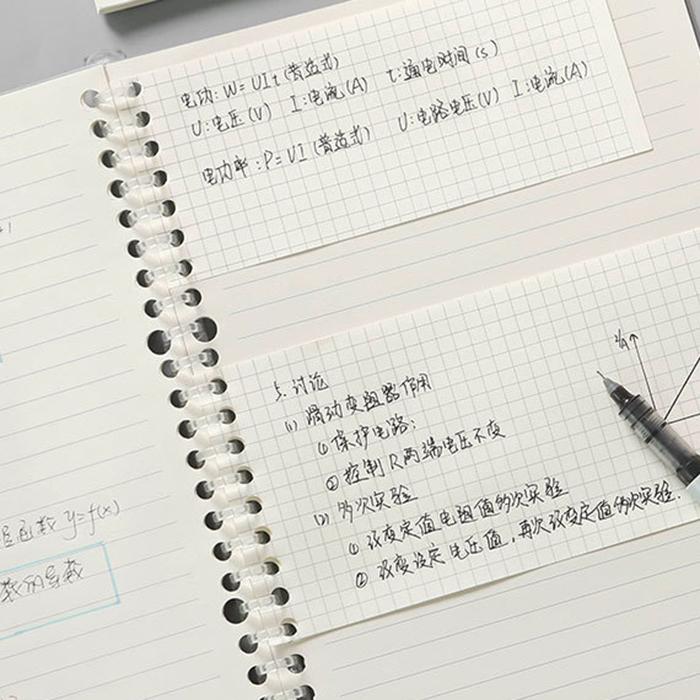 电功: W=UIt (普适式)
U:电压(V) I:电流(A) t:通电时间(s)
电功率: P=UI (普适式) U:电路电压(V) I:电流(A)
5.讨论
(1) 滑动变阻器作用
①保护电路;
②控制R两端电压不变
(2) 多次实验
①改变定值电阻值多次实验
②改变设定电压值,再次改变定值多次实验.
I/A
函数 y=f(x)
数的导数